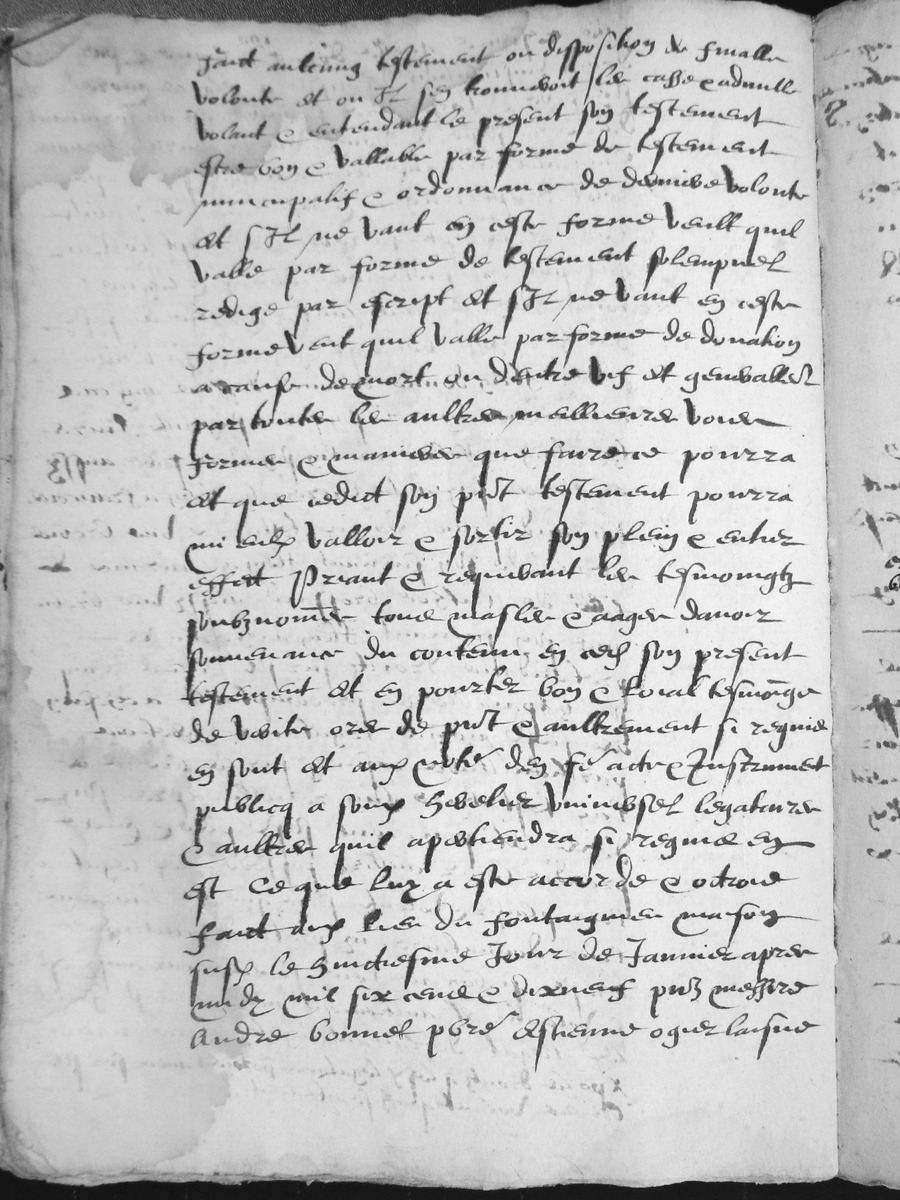 faict aulcung testement ou disposition de sinalle
volonte et ou Il sen trouveroit les casse & adnulle
volant & entendant le present son testement
estre bon & vallable par forme de testement
nuncupatif & ordonnance de derniere volonte
et sIl ne vault en ceste forme veult quil
valle par forme de testement solempnel
redige par escript et sIl ne vault en ceste
forme veut quil valle par forme de donation
a cause de mort ou dentre vif et generallemt
par toutes les aultres meilleures voies
formes & manieres que faire ce pourra
et que cedict son pnt testement pourra
mieulx valloir & sortir son plein & entier
effect Priant & requerant les tesmoingtz
soubznommes tous masles & aages davoir
souvenance du contenu en cest son present
testement et en pourter bon & loial tesmoinge
de verite ores de pnt & aultrement si requis
en sont et aux notre den fe acte & Instrument
publicq a soux heretier universel legataires
& aultres quil apertiendra si requis en
est Ce que luy a este accorde & octroie
faict aux lieu du fontaignieu maison
susd le huictiesme Jour de Janvier apres
midy mil six cens & dixneuf pntz messire
Andre bonnet pbre Estienne ogier laisne